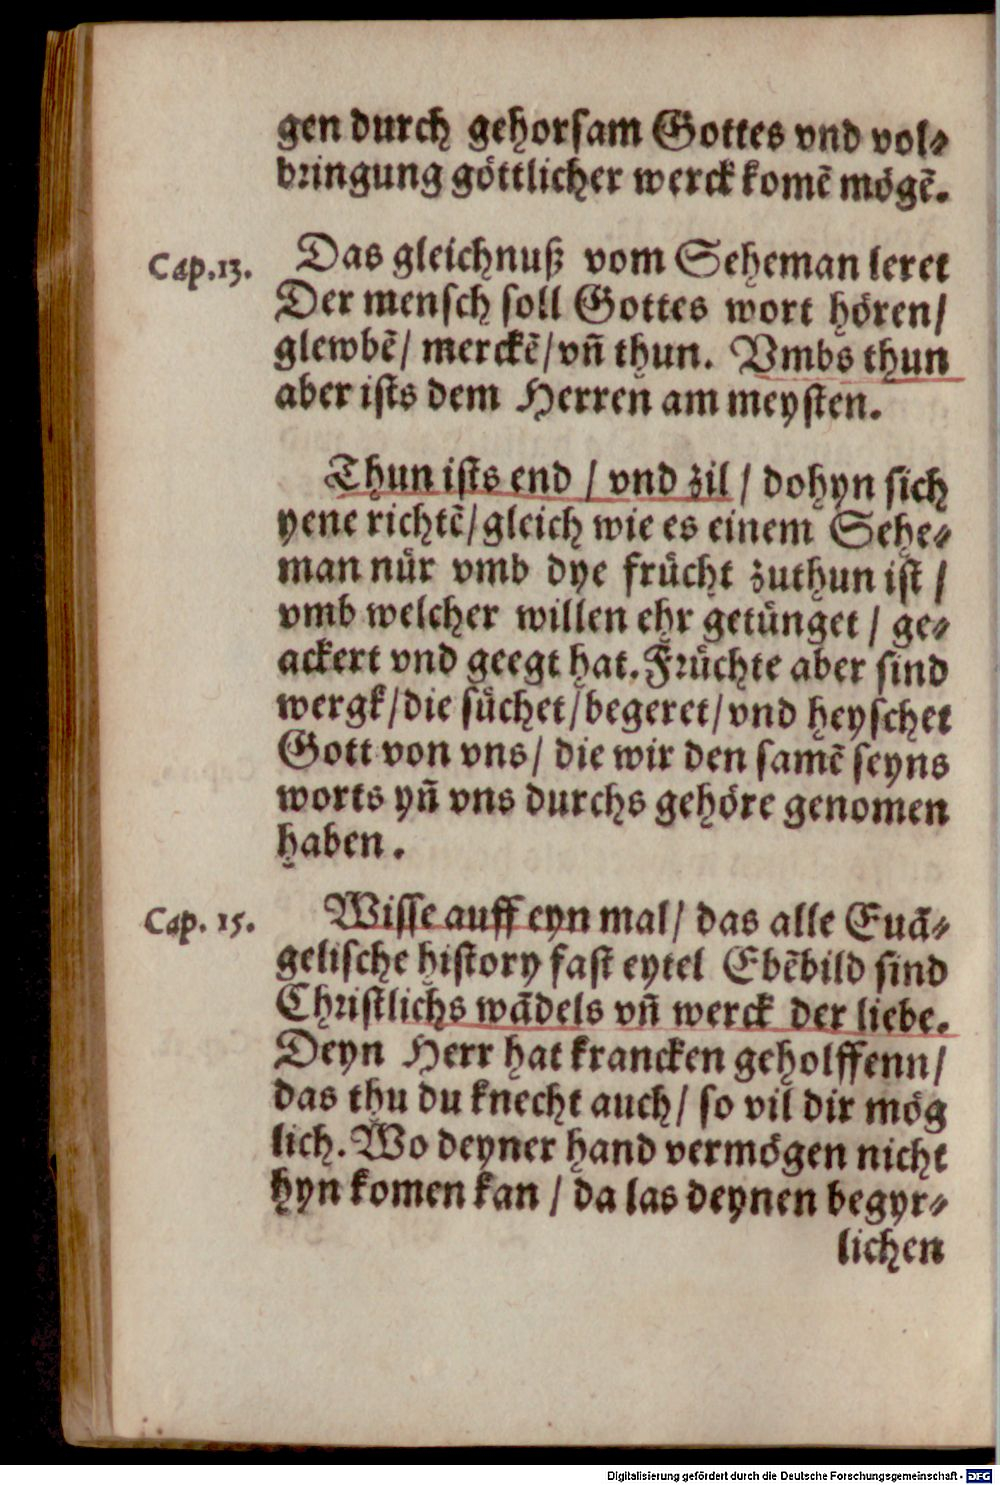 gen durch gehorsam Gottes vnd vol⸗
bringung göttlicher werck komē mögē.
Cap. 13. Das gleichnuß vom Seheman leret
Der mensch soll Gottes wort hören/
glewbē/ merckē/ vñ thun. Vmbs thun
aber ists dem Herren am meysten.
Thun ists end / vnd zil / dohyn sich
yene richtē/ gleich wie es einem Sehe⸗
man nür vmb dye frücht zuthun ist /
vmb welcher willen ehr getünget / ge⸗
ackert vnd geegt hat. Früchte aber sind
wergk/ die süchet/ begeret/ vnd heyschet
Gott von vns/ die wir den samē seyns
worts yñ vns durchs gehöre genomen
haben.
Cap. 15. Wisse auff eyn mal/ das alle Euā⸗
gelische history fast eytel Ebēbild sind
Christlichs wādels vñ werck der liebe.
Deyn Herr hat krancken geholffenn/
das thu du knecht auch/ so vil dir mög
lich. Wo deyner hand vermögen nicht
hyn komen kan / da las deynen begyr⸗
lichen
Digitalisierung gefördert durch die Deutsche Forschungsgemeinschaft - DFG